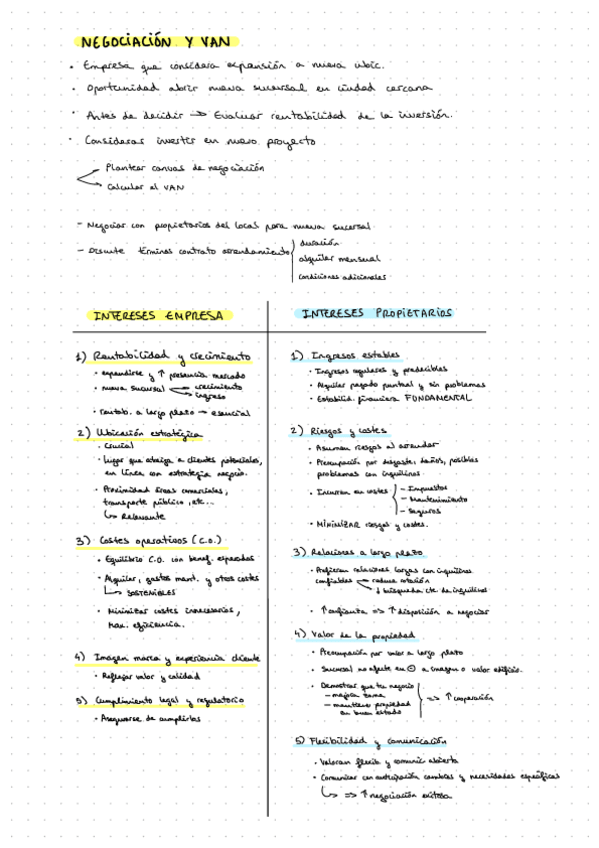 NEGOCIACIÓN Y VAN
· Empresa que considera expansión a nueva ubic.
· Oportunidad abrir nueva sucursal en ciudad cercana
· Antes de decidir → Evaluar rentabilidad de la inversión.
· Consideras invertir en nuevo proyecto
Plantear canvas de negociación
Calcular el VAN
- Negociar con propietarios del local para nueva sucursal
- Discute términos contrato arrendamiento
duración
alquiler mensual
condiciones adicionales
INTERESES EMPRESA
1) Rentabilidad y crecimiento
· expandirse y ↑ presencia mercado
· nueva sucursal
crecimiento
ingreso
· rentab. a largo plazo → esencial
2) Ubicación estratégica
· Crucial
· Lugar que atraiga a clientes potenciales,
en línea con estrategia negocio.
· Proximidad áreas comerciales,
transporte público, etc...
↳ Relevante
3) Costes operativos (C.O.)
· Equilibrio C.O. con benef. esperados
· Alquiler, gastos mant. y otros costes
↳ SOSTENIBLES
· Minimizar costes innecesarios,
max. eficiencia.
4) Imagen marca y experiencia cliente
· Reflejar valor y calidad
5) Cumplimiento legal y regulatorio
· Asegurarse de cumplirlas
INTERESES PROPIETARIOS
1) Ingresos estables
· Ingresos regulares y predecibles
· Alquiler pagado puntual y sin problemas
· Estabilid. financiera FUNDAMENTAL
2) Riesgos y costes
· Asumen riesgos al arrendar
· Preocupación por desgaste, daños, posibles
problemas con inquilinos
· Incurren en costes
- Impuestos
- Mantenimiento
- Seguros
· MINIMIZAR riesgos y costes.
3) Relaciones a largo plazo
· Prefieren relaciones largas con inquilinos
confiables
reduce rotación
↓ búsqueda cte. de inquilinos
· ↑ confianza => ↑ disposición a negociar
4) Valor de la propiedad
· Preocupación por valor a largo plazo
· Sucursal no afecte en ⊖ a imagen o valor edificio.
· Demostrar que tu negocio
- mejora zona
- mantiene propiedad
en buen estado
=> ↑ cooperación
5) Flexibilidad y comunicación
· Valoran flexib y comunic abierta
· Comunicar con anticipación cambios y necesidades específicas
↳ => ↑ negociación exitosa